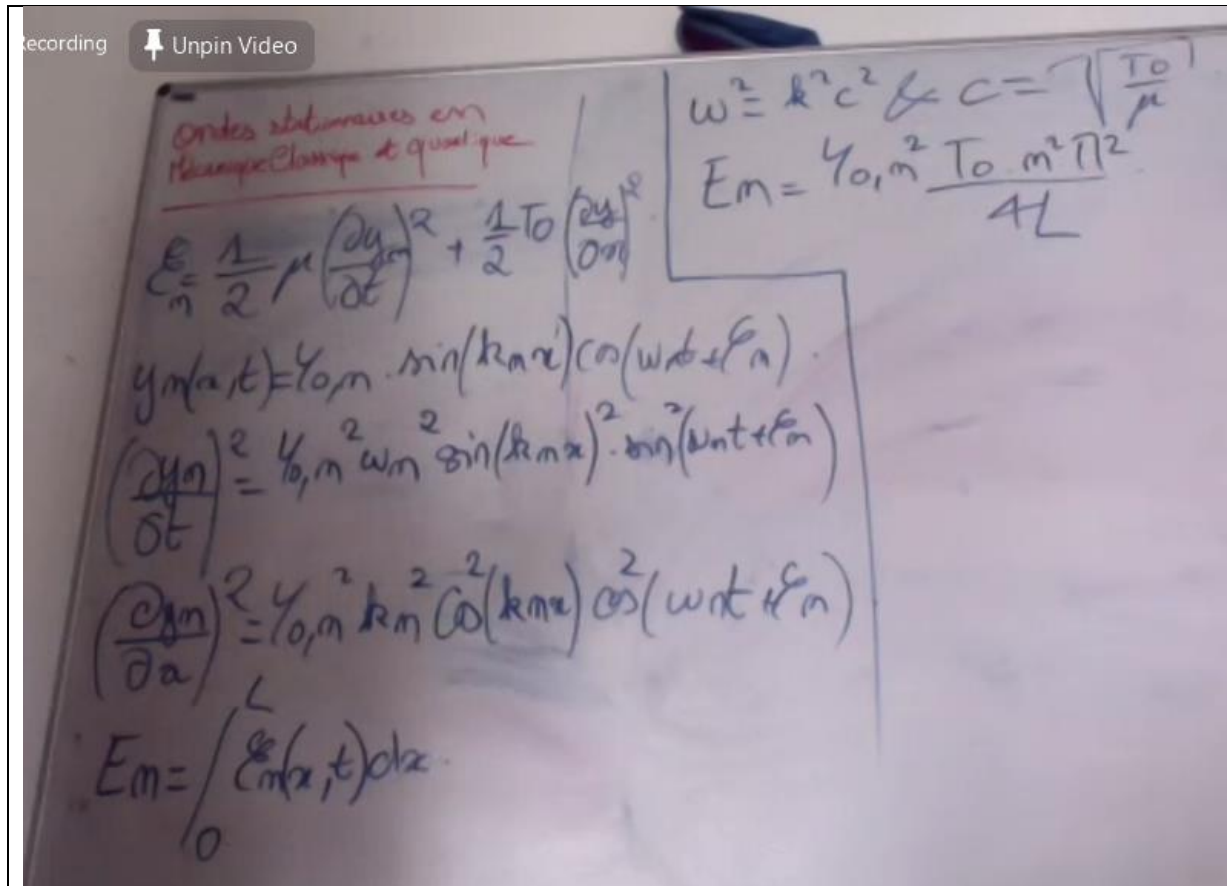 Recording
Unpin Video
ondes stationnaires en
Mécanique Classique et quantique
ℰn = 1/2 μ (∂yn/∂t)² + 1/2 T0 (∂yn/∂x)²
yn(x,t) = Y0,n . sin(knx) cos(ωnt + φn)
(∂yn/∂t)² = Y0,n² ωn² sin(knx)² . sin²(ωnt + φn)
(∂yn/∂x)² = Y0,n² kn² cos²(knx) cos²(ωnt + φn)
En = ∫₀ᴸ ℰn(x,t)dx.
ω² = k²c² & c = √(T0/μ)
En = Y0,n² T0 . n² Π² / 4L